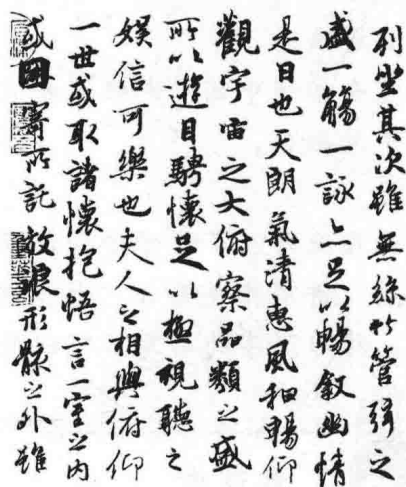 列坐其次雖無絲竹管弦之
盛一觴一詠亦足以暢叙幽情
是日也天朗氣清惠風和暢仰
觀宇宙之大俯察品類之盛
所以遊目騁懷足以極視聽之
娛信可樂也夫人之相與俯仰
一世或取諸懷抱悟言一室之內
或因寄所託放浪形骸之外雖